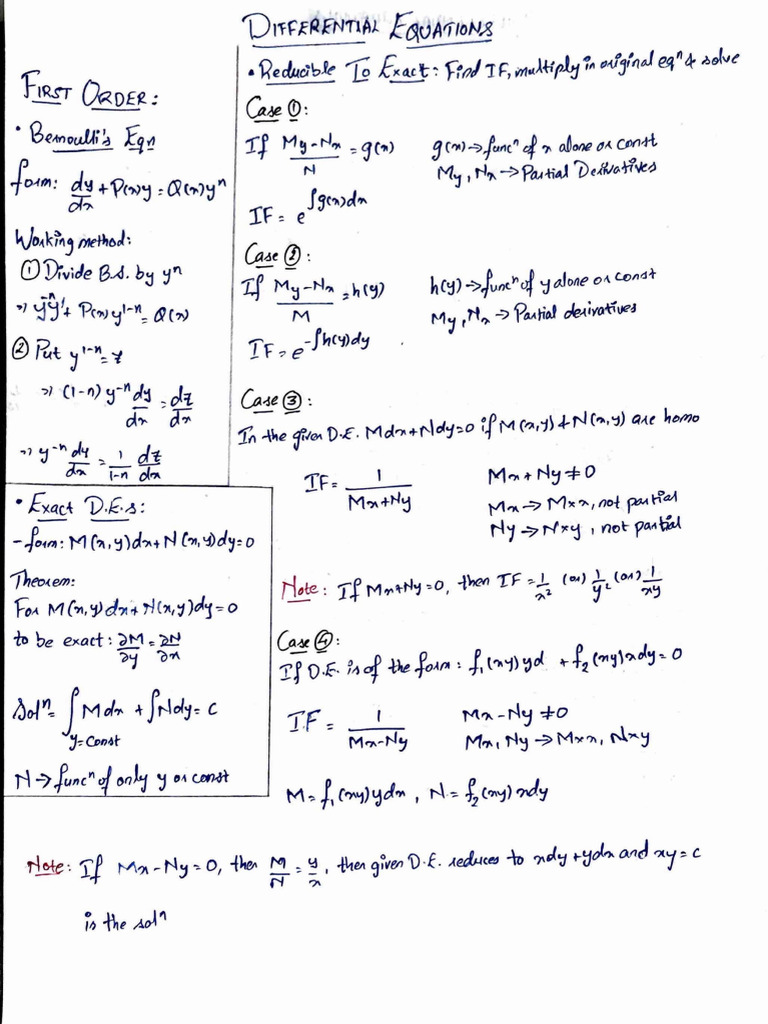 DIFFERENTIAL EQUATIONS
FIRST ORDER:
• Bernoulli's Eqn
form: dy/dx + P(x)y = Q(x)yⁿ
Working method:
① Divide B.S. by yⁿ
⇒ y⁻ⁿy' + P(x)y¹⁻ⁿ = Q(x)
② Put y¹⁻ⁿ = z
⇒ (1-n) y⁻ⁿ dy/dx = dz/dx
⇒ y⁻ⁿ dy/dx = 1/(1-n) dz/dx
• Exact D.E.s:
- form: M(x,y)dx + N(x,y)dy = 0
Theorem:
For M(x,y)dx + N(x,y)dy = 0
to be exact: ∂M/∂y = ∂N/∂x
Solⁿ = ∫Mdx + ∫Ndy = c
y=const
N → funcⁿ of only y or const
• Reducible To Exact: Find IF, multiply in original eqⁿ & solve
Case ①:
If (My-Nx)/N = g(x) g(x) → funcⁿ of x alone or const
My, Nx → Partial Derivatives
IF = e^∫g(x)dx
Case ②:
If (My-Nx)/M = h(y) h(y) → funcⁿ of y alone or const
My, Nx → Partial derivatives
IF = e^-∫h(y)dy
Case ③:
In the given D.E. Mdx+Ndy=0 if M(x,y) & N(x,y) are homo
IF = 1/(Mx+Ny) Mx + Ny ≠ 0
Mx → M×x, not partial
Ny → N×y, not partial
Note: If Mx+Ny=0, then IF = 1/x² (or) 1/y² (or) 1/xy
Case ④:
If D.E. is of the form: f₁(xy)yd + f₂(xy)xdy = 0
IF = 1/(Mx-Ny) Mx-Ny ≠ 0
Mx, Ny → M×x, N×y
M = f₁(xy)ydx, N = f₂(xy)xdy
Note: If Mx-Ny=0, then M/N = y/x, then given D.E. reduces to xdy+ydx and xy=c
is the solⁿ